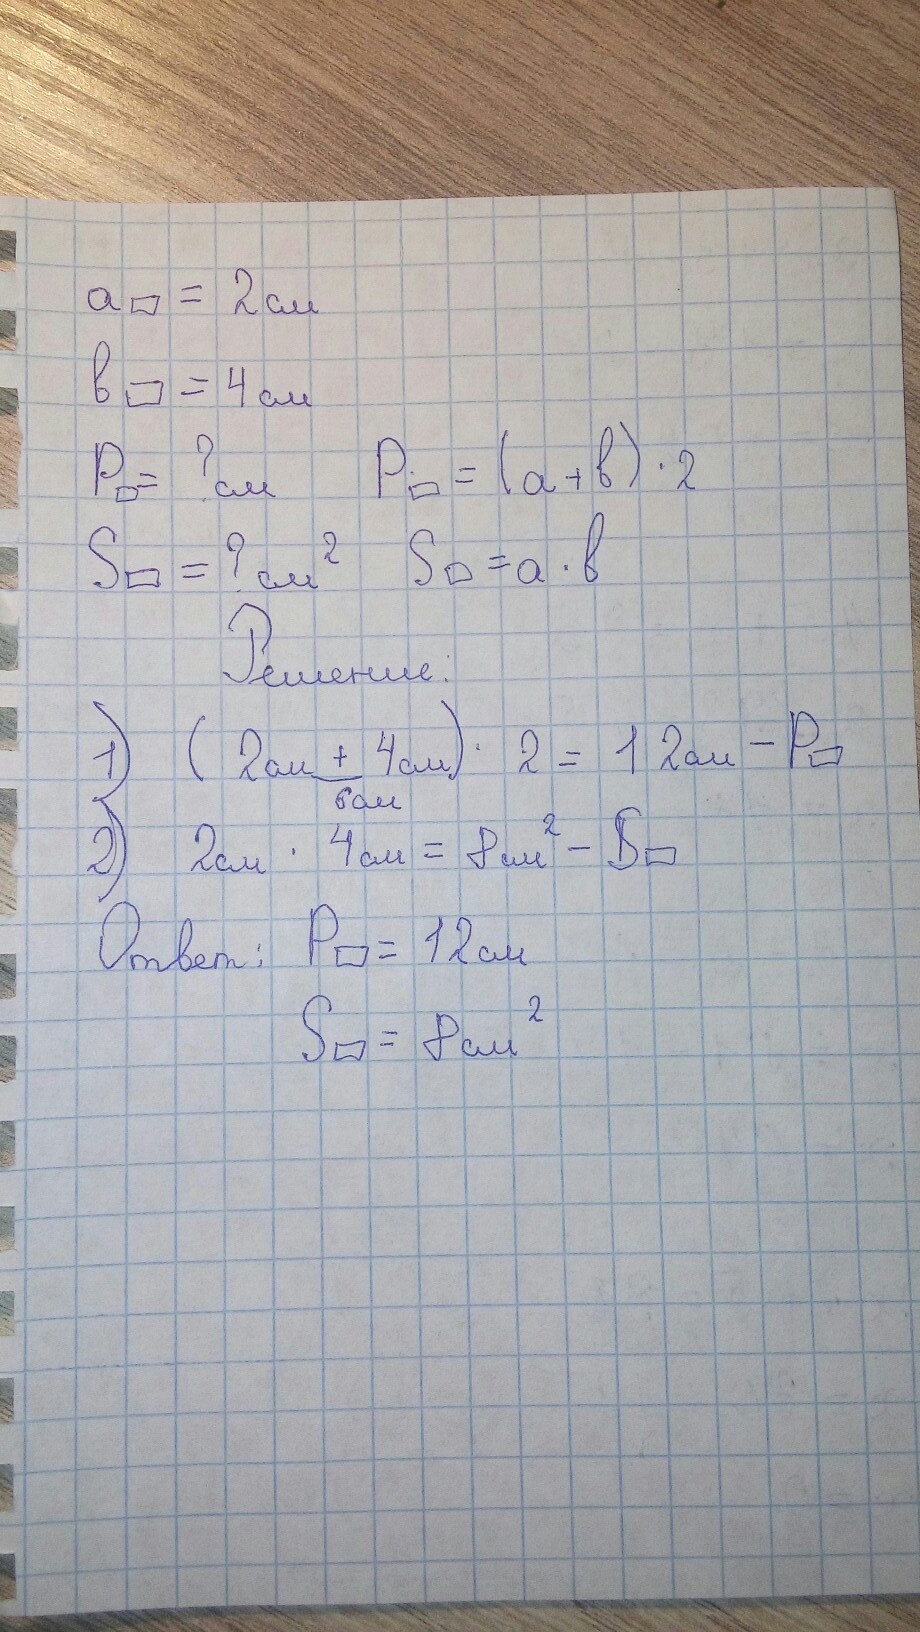 a▭ = 2см
в▭ = 4см
P▭ = ? см P▭ = (a+в)·2
S▭ = ? см² S▭ = a·в
Решение:
1) (2см + 4см)· 2 = 12см – P▭
6см
2) 2см · 4см = 8см² – S▭
Ответ: P▭ = 12см
S▭ = 8см²